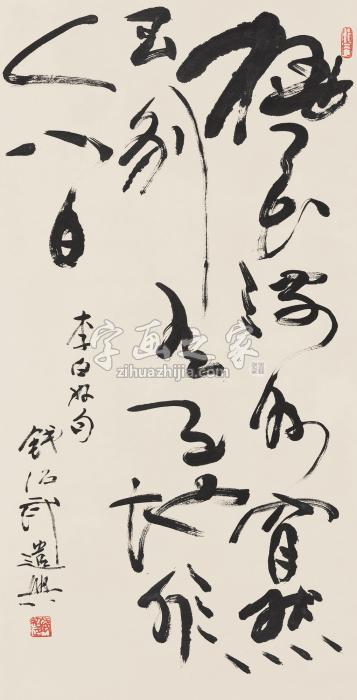 桃花流水窅然
去別有天地非
人間
李白好句
錢紹武遣興
字画之家
zihuazhijia.com